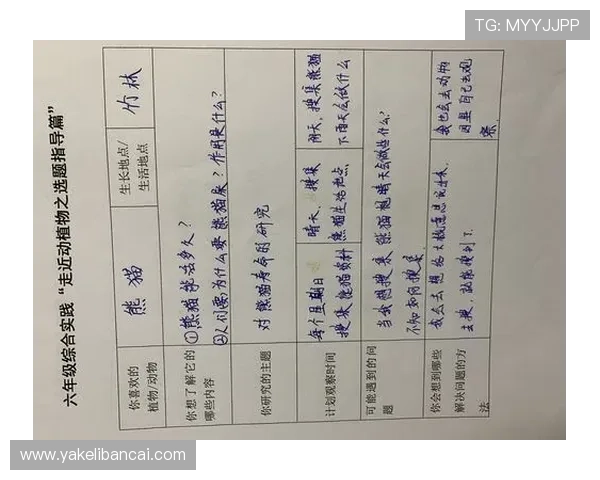 TG: MYYJJPP
六年级综合实践“走近动植物之选题指导篇”
你喜欢的
植物/动物
熊猫
生长地点/
生活地点
竹林
你想了解它的
哪些内容
①熊猫能活多久?
②人们要为什么要熊猫来?作用是什么?
你研究的主题
对熊猫寿命的研究
计划观察时间
每个星期日
搜集熊猫资料
晴天,搜集
熊猫生活地点
阴天,搜集熊猫
下雨天会做什么
可能遇到的问
题
当我想搜集熊猫晴天会做些什么?
不知如何搜集
你会想到哪些
解决问题的方
法
我会去想给大概意思说进来,
去搜,就能搜到了.
我也会去动物
园里自己去观
察.
www.yakelibancai.com